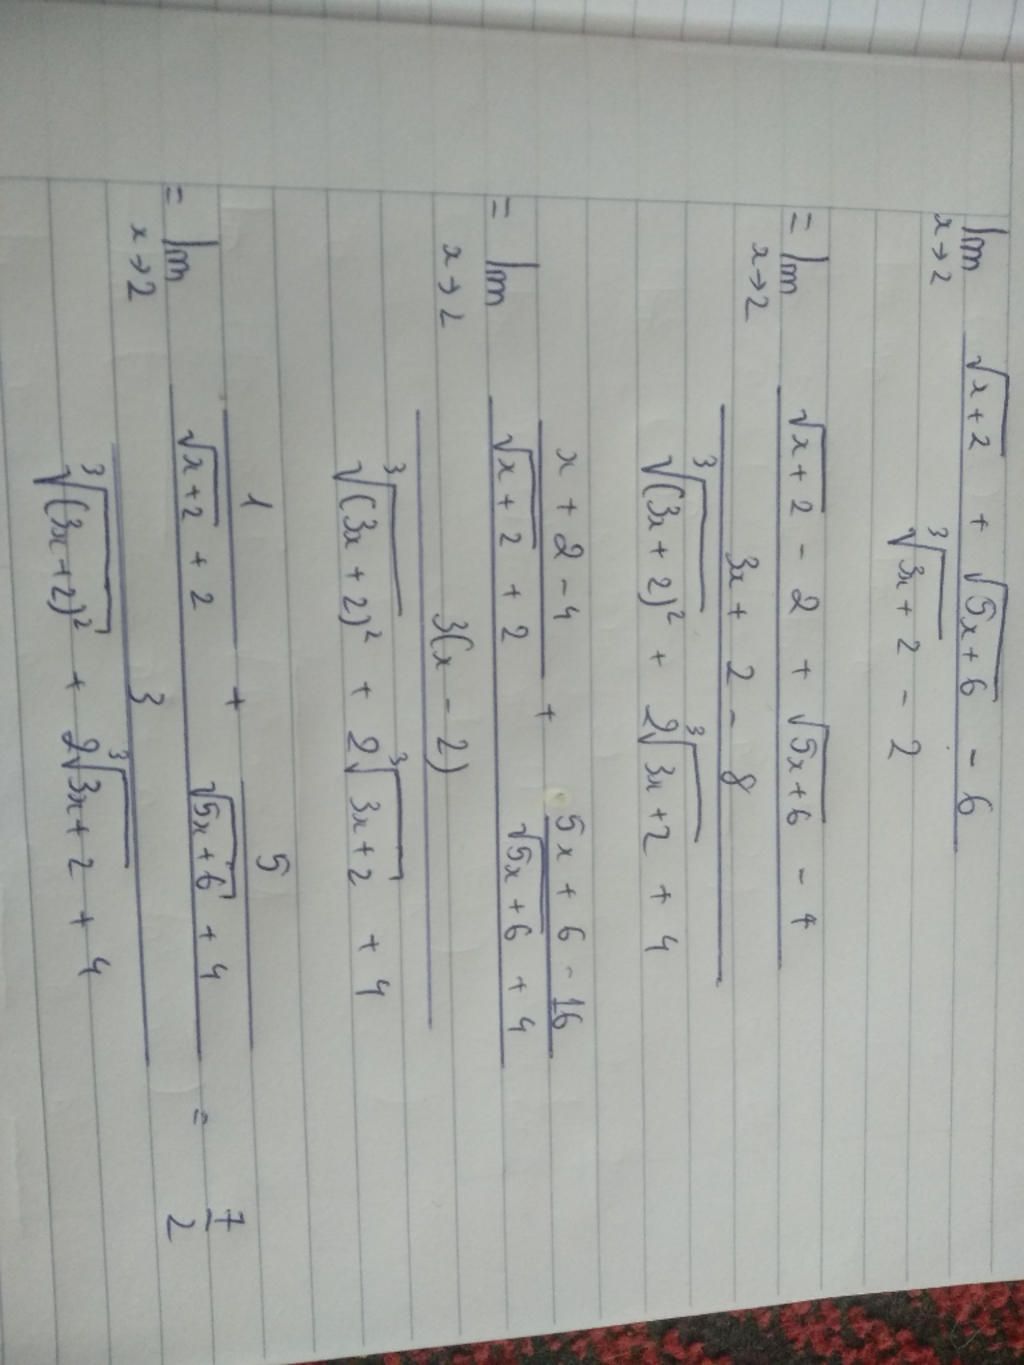 lim x→2 (√(x+2) + √(5x+6) - 6) / (∛(3x+2) - 2)
= lim x→2 (√(x+2) - 2 + √(5x+6) - 4) / ((3x+2-8) / (∛(3x+2)² + 2∛(3x+2) + 4))
= lim x→2 ((x+2-4) / (√(x+2) + 2) + (5x+6-16) / (√(5x+6) + 4)) / (3(x-2) / (∛(3x+2)² + 2∛(3x+2) + 4))
= lim x→2 (1 / (√(x+2) + 2) + 5 / (√(5x+6) + 4)) / (3 / (∛(3x+2)² + 2∛(3x+2) + 4)) = 7/2